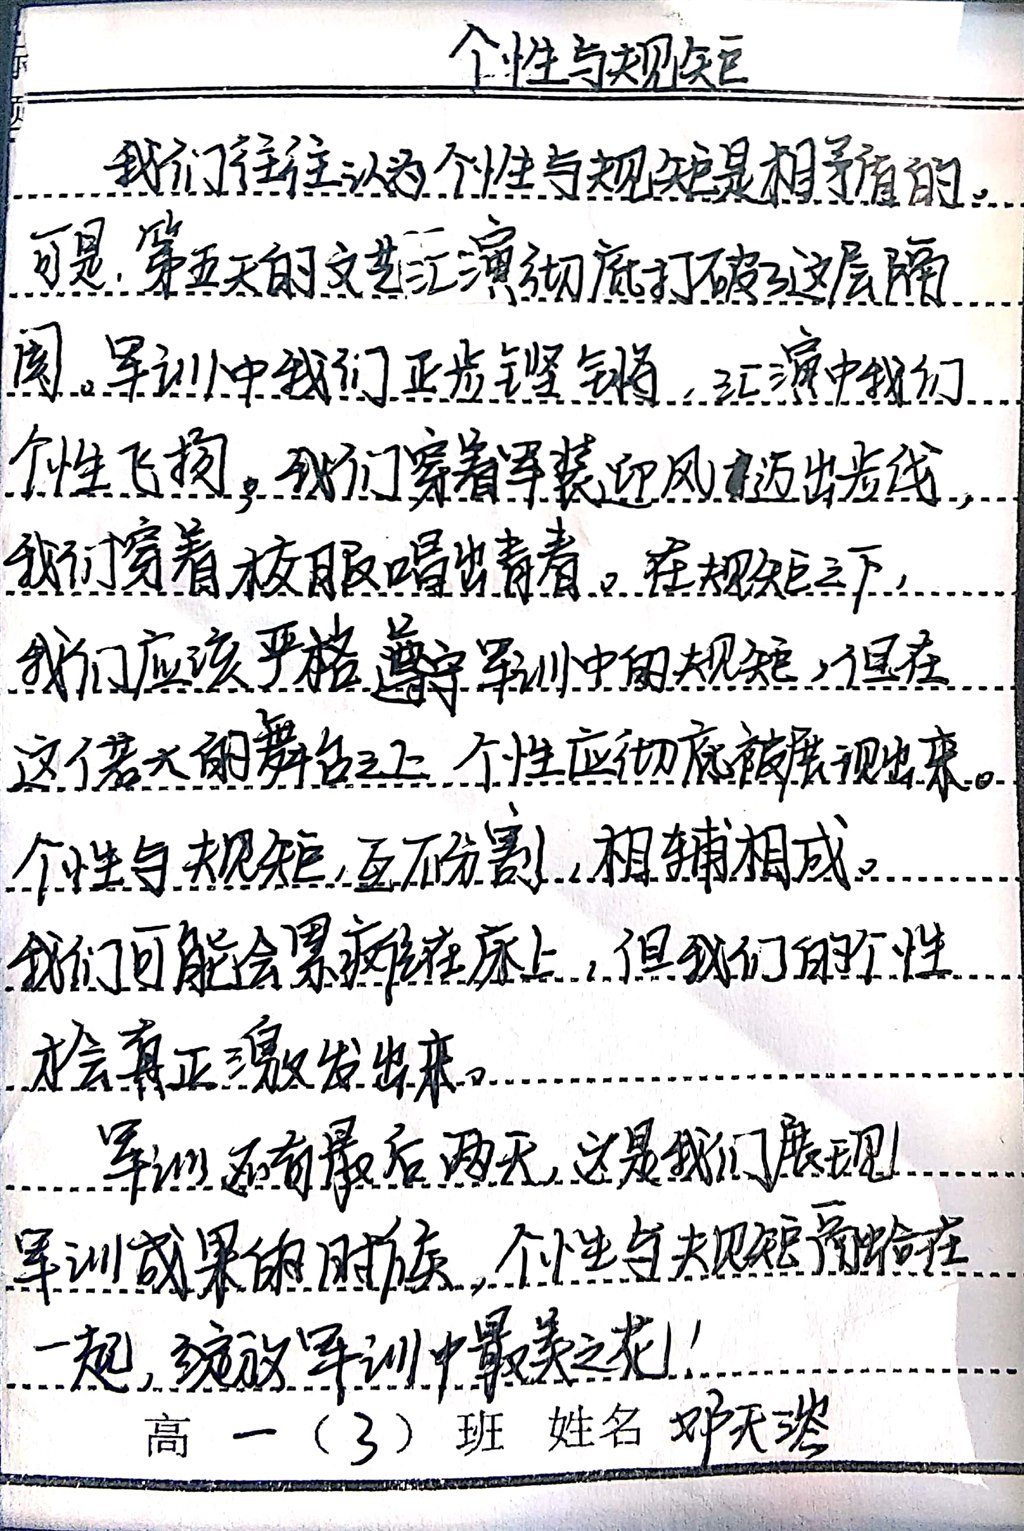 个性与规矩
我们往往认为个性与规矩是相矛盾的。
可是，第五天的文艺汇演彻底打破了这层隔
阂。军训中我们正步铿锵，汇演中我们
个性飞扬。我们穿着军装迎风迈出步伐，
我们穿着校服唱出青春。在规矩之下，
我们应该严格遵守军训中的规矩，但在
这偌大的舞台之上，个性应彻底被展现出来。
个性与规矩，互不分割，相辅相成。
我们可能会累瘫在床上，但我们的个性
才会真正激发出来。
军训还有最后两天，这是我们展现
军训成果的时候，个性与规矩融合在
一起，绽放军训中最美之花！
高一（3）班 姓名 邓天